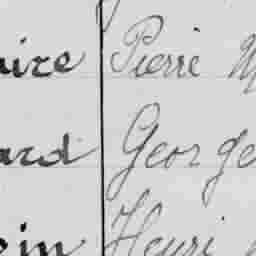 aire Pierre M
ard George
ein Henri